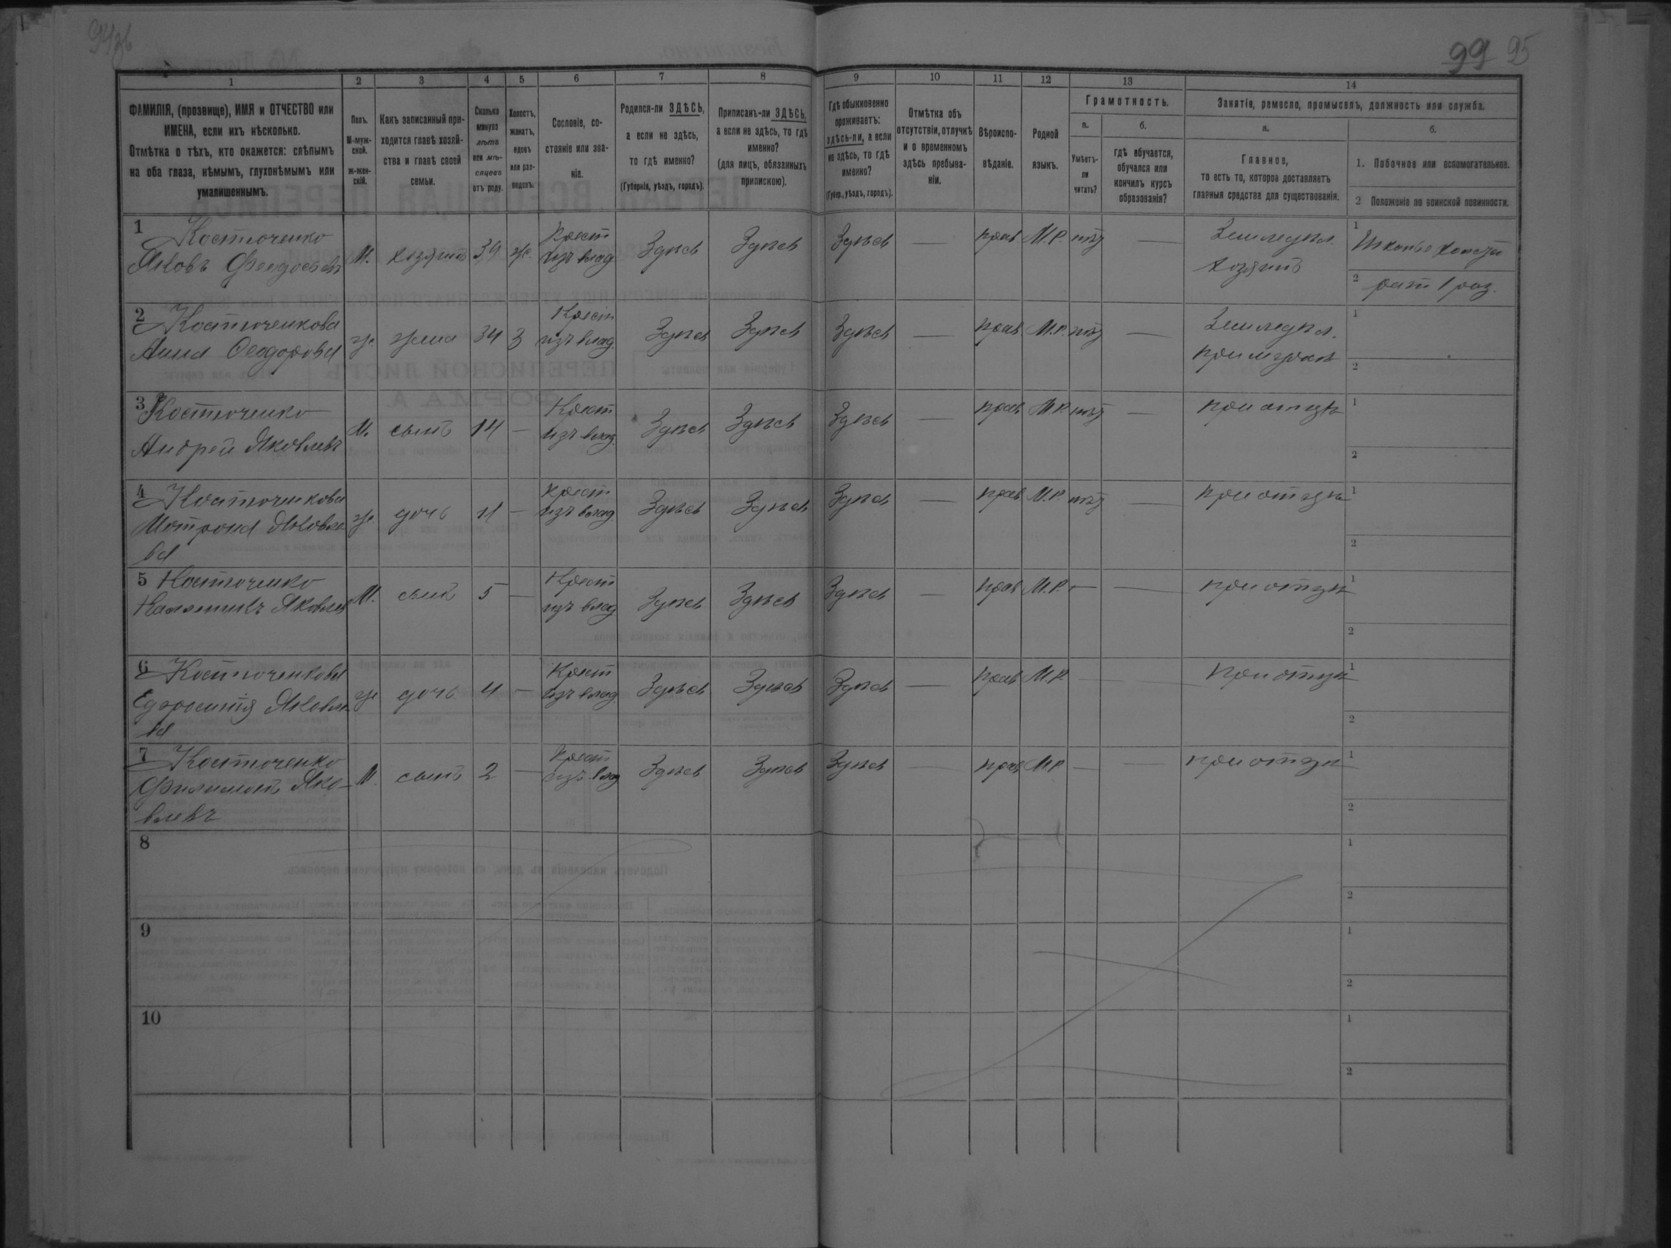 99 95
1 2 3 4 5 6 7 8 9 10 11 12 13 14
ФАМИЛІЯ, (прозвище), ИМЯ и ОТЧЕСТВО или
ИМЕНА, если ихъ нѣсколько.
Отмѣтка о тѣхъ, кто окажется: слѣпымъ
на оба глаза, нѣмымъ, глухонѣмымъ или
умалишеннымъ.
Полъ.
М-муж-
ской.
ж-жен-
скій.
Какъ записанный при-
ходится главѣ хозяй-
ства и главѣ своей
семьи.
Сколько
минуло
лѣтъ
или мѣ-
сяцевъ
отъ роду.
Холостъ,
женатъ,
вдовъ
или раз-
веденъ.
Сословіе, со-
стояніе или зва-
ніе.
Родился-ли ЗДѢСЬ,
а если не здѣсь,
то гдѣ именно?
(Губернія, уѣздъ, городъ).
Приписанъ-ли ЗДѢСЬ,
а если не здѣсь, то гдѣ
именно?
(для лицъ, обязанныхъ
припискою).
Гдѣ обыкновенно
проживаетъ:
здѣсь-ли, а если
не здѣсь, то гдѣ
именно?
(Губерн., уѣздъ, городъ).
Отмѣтка объ
отсутствіи, отлучкѣ
и о временномъ
здѣсь пребыва-
ніи.
Вѣроиспо-
вѣданіе.
Родной
языкъ.
Грамотность.
а.
Умѣетъ-
ли
читать?
б.
гдѣ обучается,
обучался или
кончилъ курсъ
образованія?
Занятія, ремесло, промыселъ, должность или служба.
а.
Главное,
то есть то, которое доставляетъ
главныя средства для существованія.
б.
1. Побочное или вспомогательное.
2 Положеніе по воинской повинности.
1 Костюченко
Яковъ Феодосьевъ М. хозяинъ 39 ж. Крест изъ влад Здѣсь Здѣсь Здѣсь — прав М.Р. нѣт — Земледѣл. хозяинъ
1
2 рат 1 раз.
2 Костюченкова
Анна Феодорова ж жена 34 З Крест изъ влад. Здѣсь Здѣсь Здѣсь — прав М.Р. нѣт — Земледѣл. при мужѣ
1
2
3 Костюченко
Андрей Яковлевъ М. сынъ 14 — Крест изъ влад. Здѣсь Здѣсь Здѣсь — прав М.Р. нѣт — при отцѣ
1
2
4 Костюченкова
Матрона Яковле
ва ж дочь 11 — Крест изъ влад Здѣсь Здѣсь Здѣсь — прав М.Р. нѣт — при отцѣ
1
2
5 Костюченко
Яковлев М. сынъ 5 — Крест изъ влад Здѣсь Здѣсь Здѣсь — прав М.Р. — — при отцѣ
1
2
6 Костюченкова
Яковле
ва ж дочь 4 — Крест изъ влад Здѣсь Здѣсь Здѣсь — прав М.Р. — — при отцѣ
1
2
7 Костюченко
Филимонъ Яко-
влевъ М. сынъ 2 — Крест изъ влад Здѣсь Здѣсь Здѣсь — прав М.Р. — — при отцѣ
1
2
8
1
2
9
1
2
10
1
2